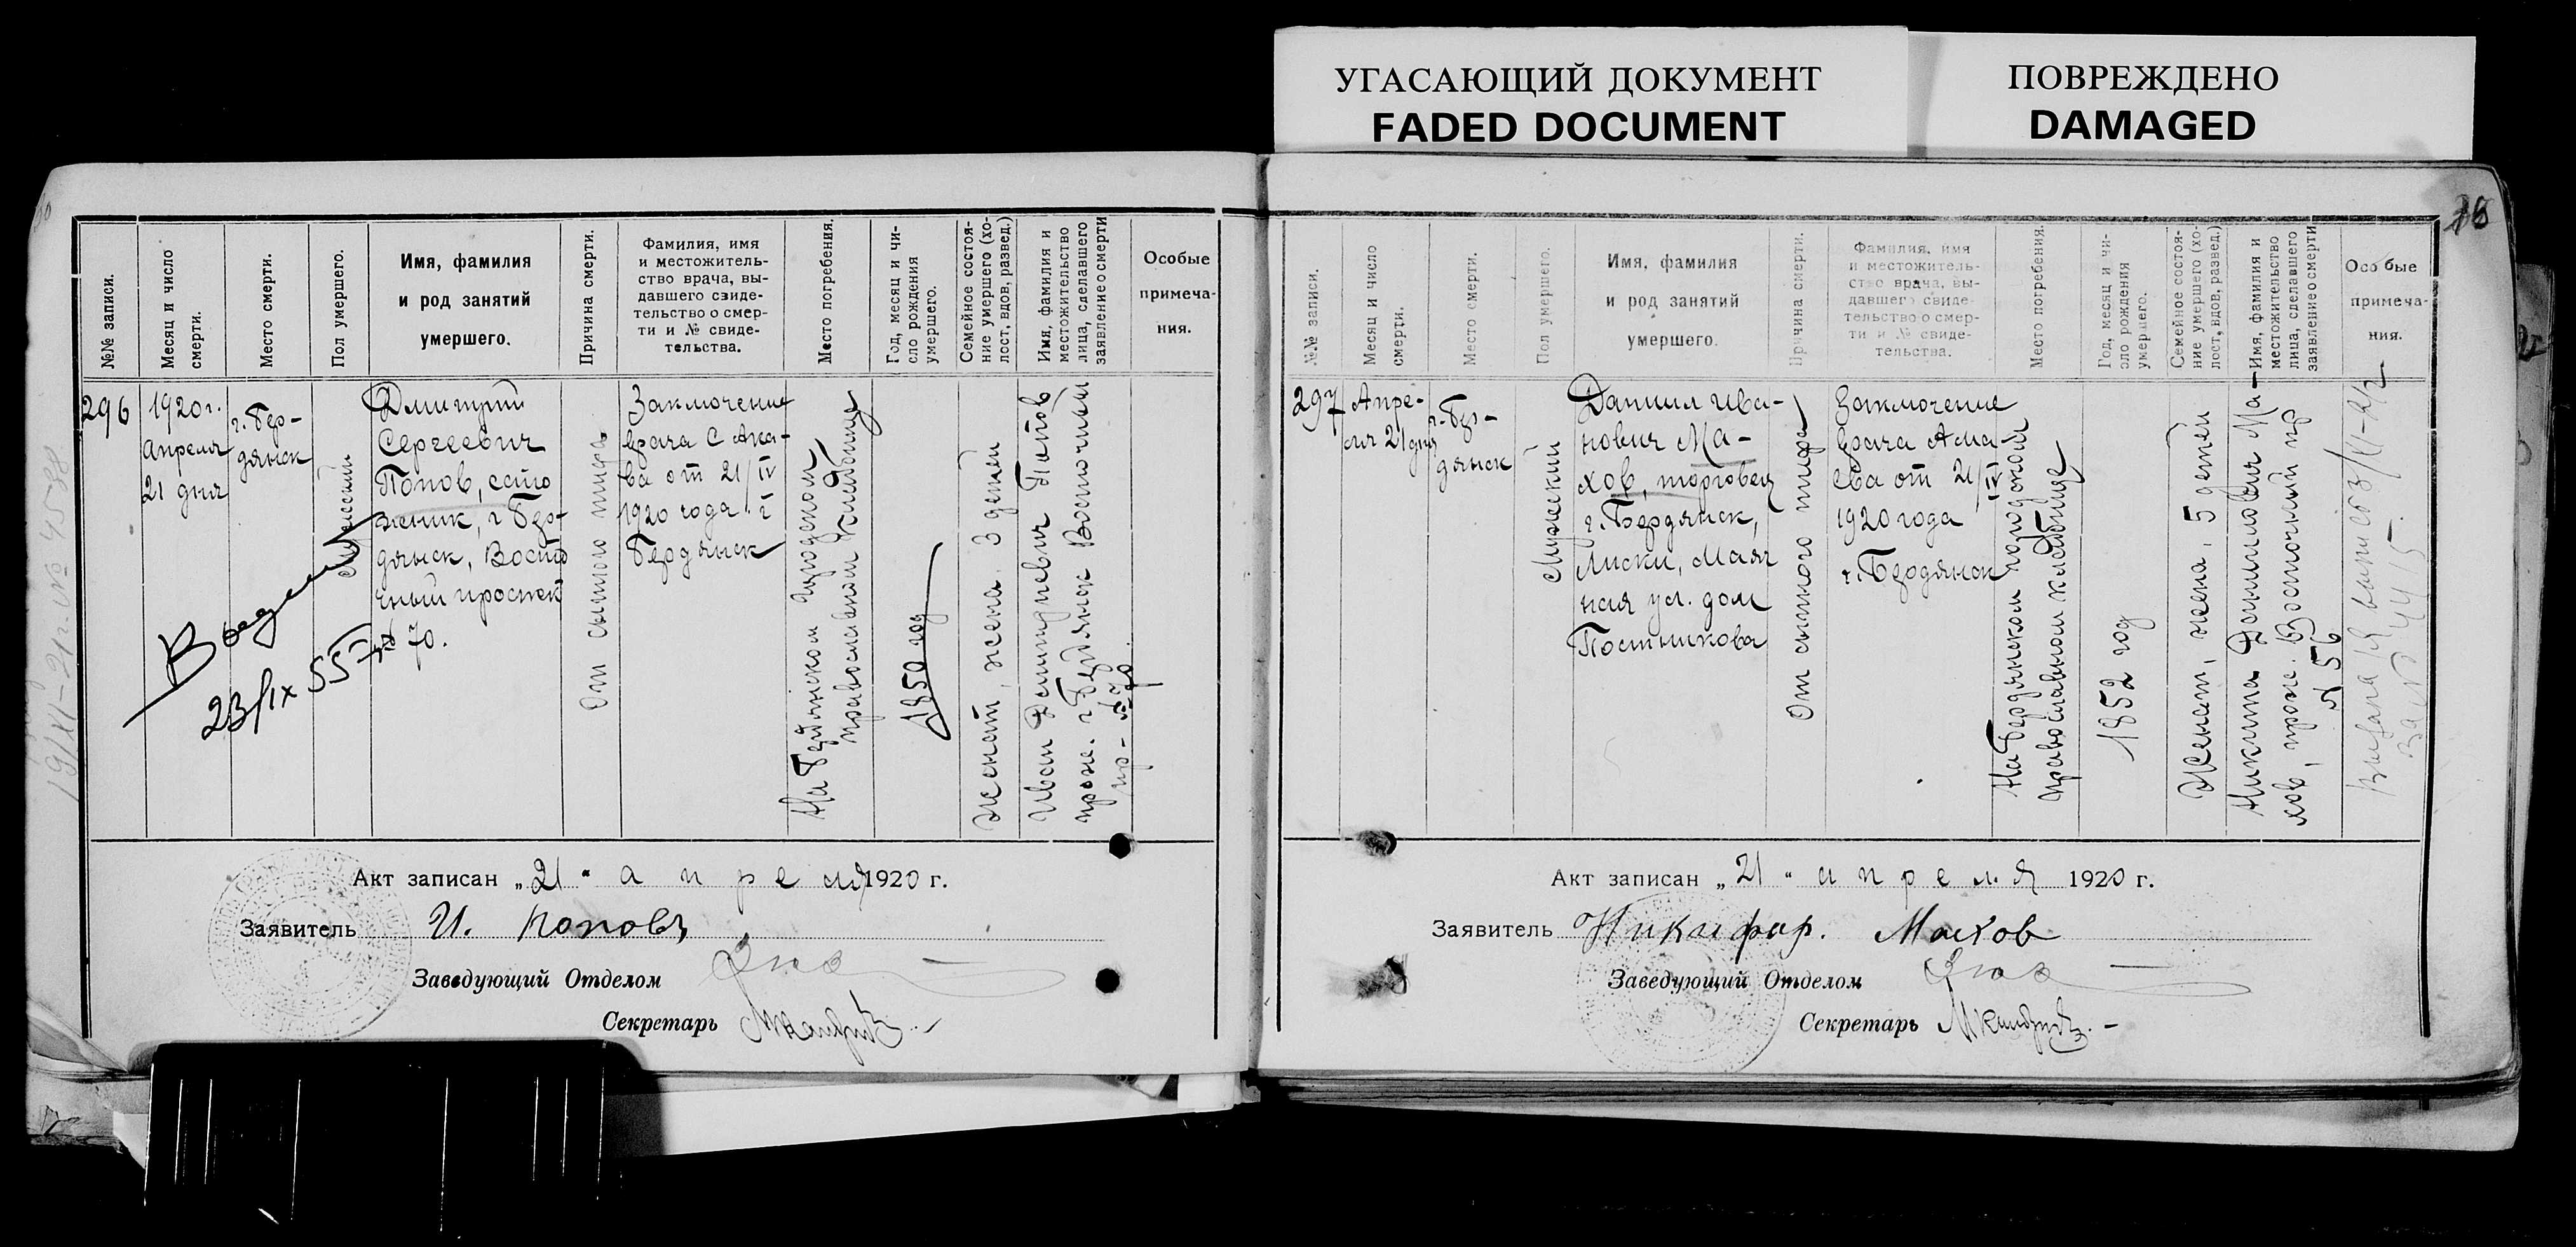 УГАСАЮЩИЙ ДОКУМЕНТ
FADED DOCUMENT
ПОВРЕЖДЕНО
DAMAGED
№№ записи.
Месяц и число
смерти.
Место смерти.
Пол умершего.
Имя, фамилия
и род занятий
умершего.
Причина смерти.
Фамилия, имя
и местожитель-
ство врача, вы-
давшего свиде-
тельство о смер-
ти и № свиде-
тельства.
Место погребения.
Год, месяц и чи-
сло рождения
умершего.
Семейное состоя-
ние умершего (хо-
лост, вдов, развед.)
Имя, фамилия и
местожительство
лица, сделавшего
заявление о смерти
Особые
примеча-
ния.
296
1920 г.
Апреля
21 дня
г. Бер-
дянск
Мужеский
Дмитрий
Сергеевич
Попов, сапо
жник, г Бер-
дянск, Восто
чный проспект
№ 70.
От сыпного тифа
Заключение
врача
от 21/IV
1920 года г
Бердянск
На Бердянском городском
православном кладбище
1850 год
Женат, жена, 3 детей
Иван Дмитриевич Попов
прож. г Бердянск Восточный
пр- № 70.
23/IX 55 г
19/XI-21 г. № 4588
Акт записан „21" апреля 1920 г.
Заявитель И. Поповъ
Заведующий Отделом
Секретарь
№№ записи.
Месяц и число
смерти.
Место смерти.
Пол умершего.
Имя, фамилия
и род занятий
умершего.
Причина смерти.
Фамилия, имя
и местожитель-
ство врача, вы-
давшего свиде-
тельство о смер-
ти и № свиде-
тельства.
Место погребения.
Год, месяц и чи-
сло рождения
умершего.
Семейное состоя-
ние умершего (хо-
лост, вдов, развед.)
Имя, фамилия и
местожительство
лица, сделавшего
заявление о смерти
Особые
примеча-
ния.
297
Апре-
ля 21 дня
г. Бер-
дянск
Мужеский
Даниил Ива-
нович Ма-
хов, торговец
г. Бердянск,
Лиски, Маяч
ная ул. дом
Постникова
От сыпного тифа
Заключение
врача
от 21/IV
1920 года
г. Бердянск
На Бердянском городском
православном кладбище
1852 год
Женат, жена, 5 детей
Никита Даниилович Ма-
хов, прож. Восточный пр
№ 56
Акт записан „21" апреля 1920 г.
Заявитель Никифор. Махов
Заведующий Отделом
Секретарь